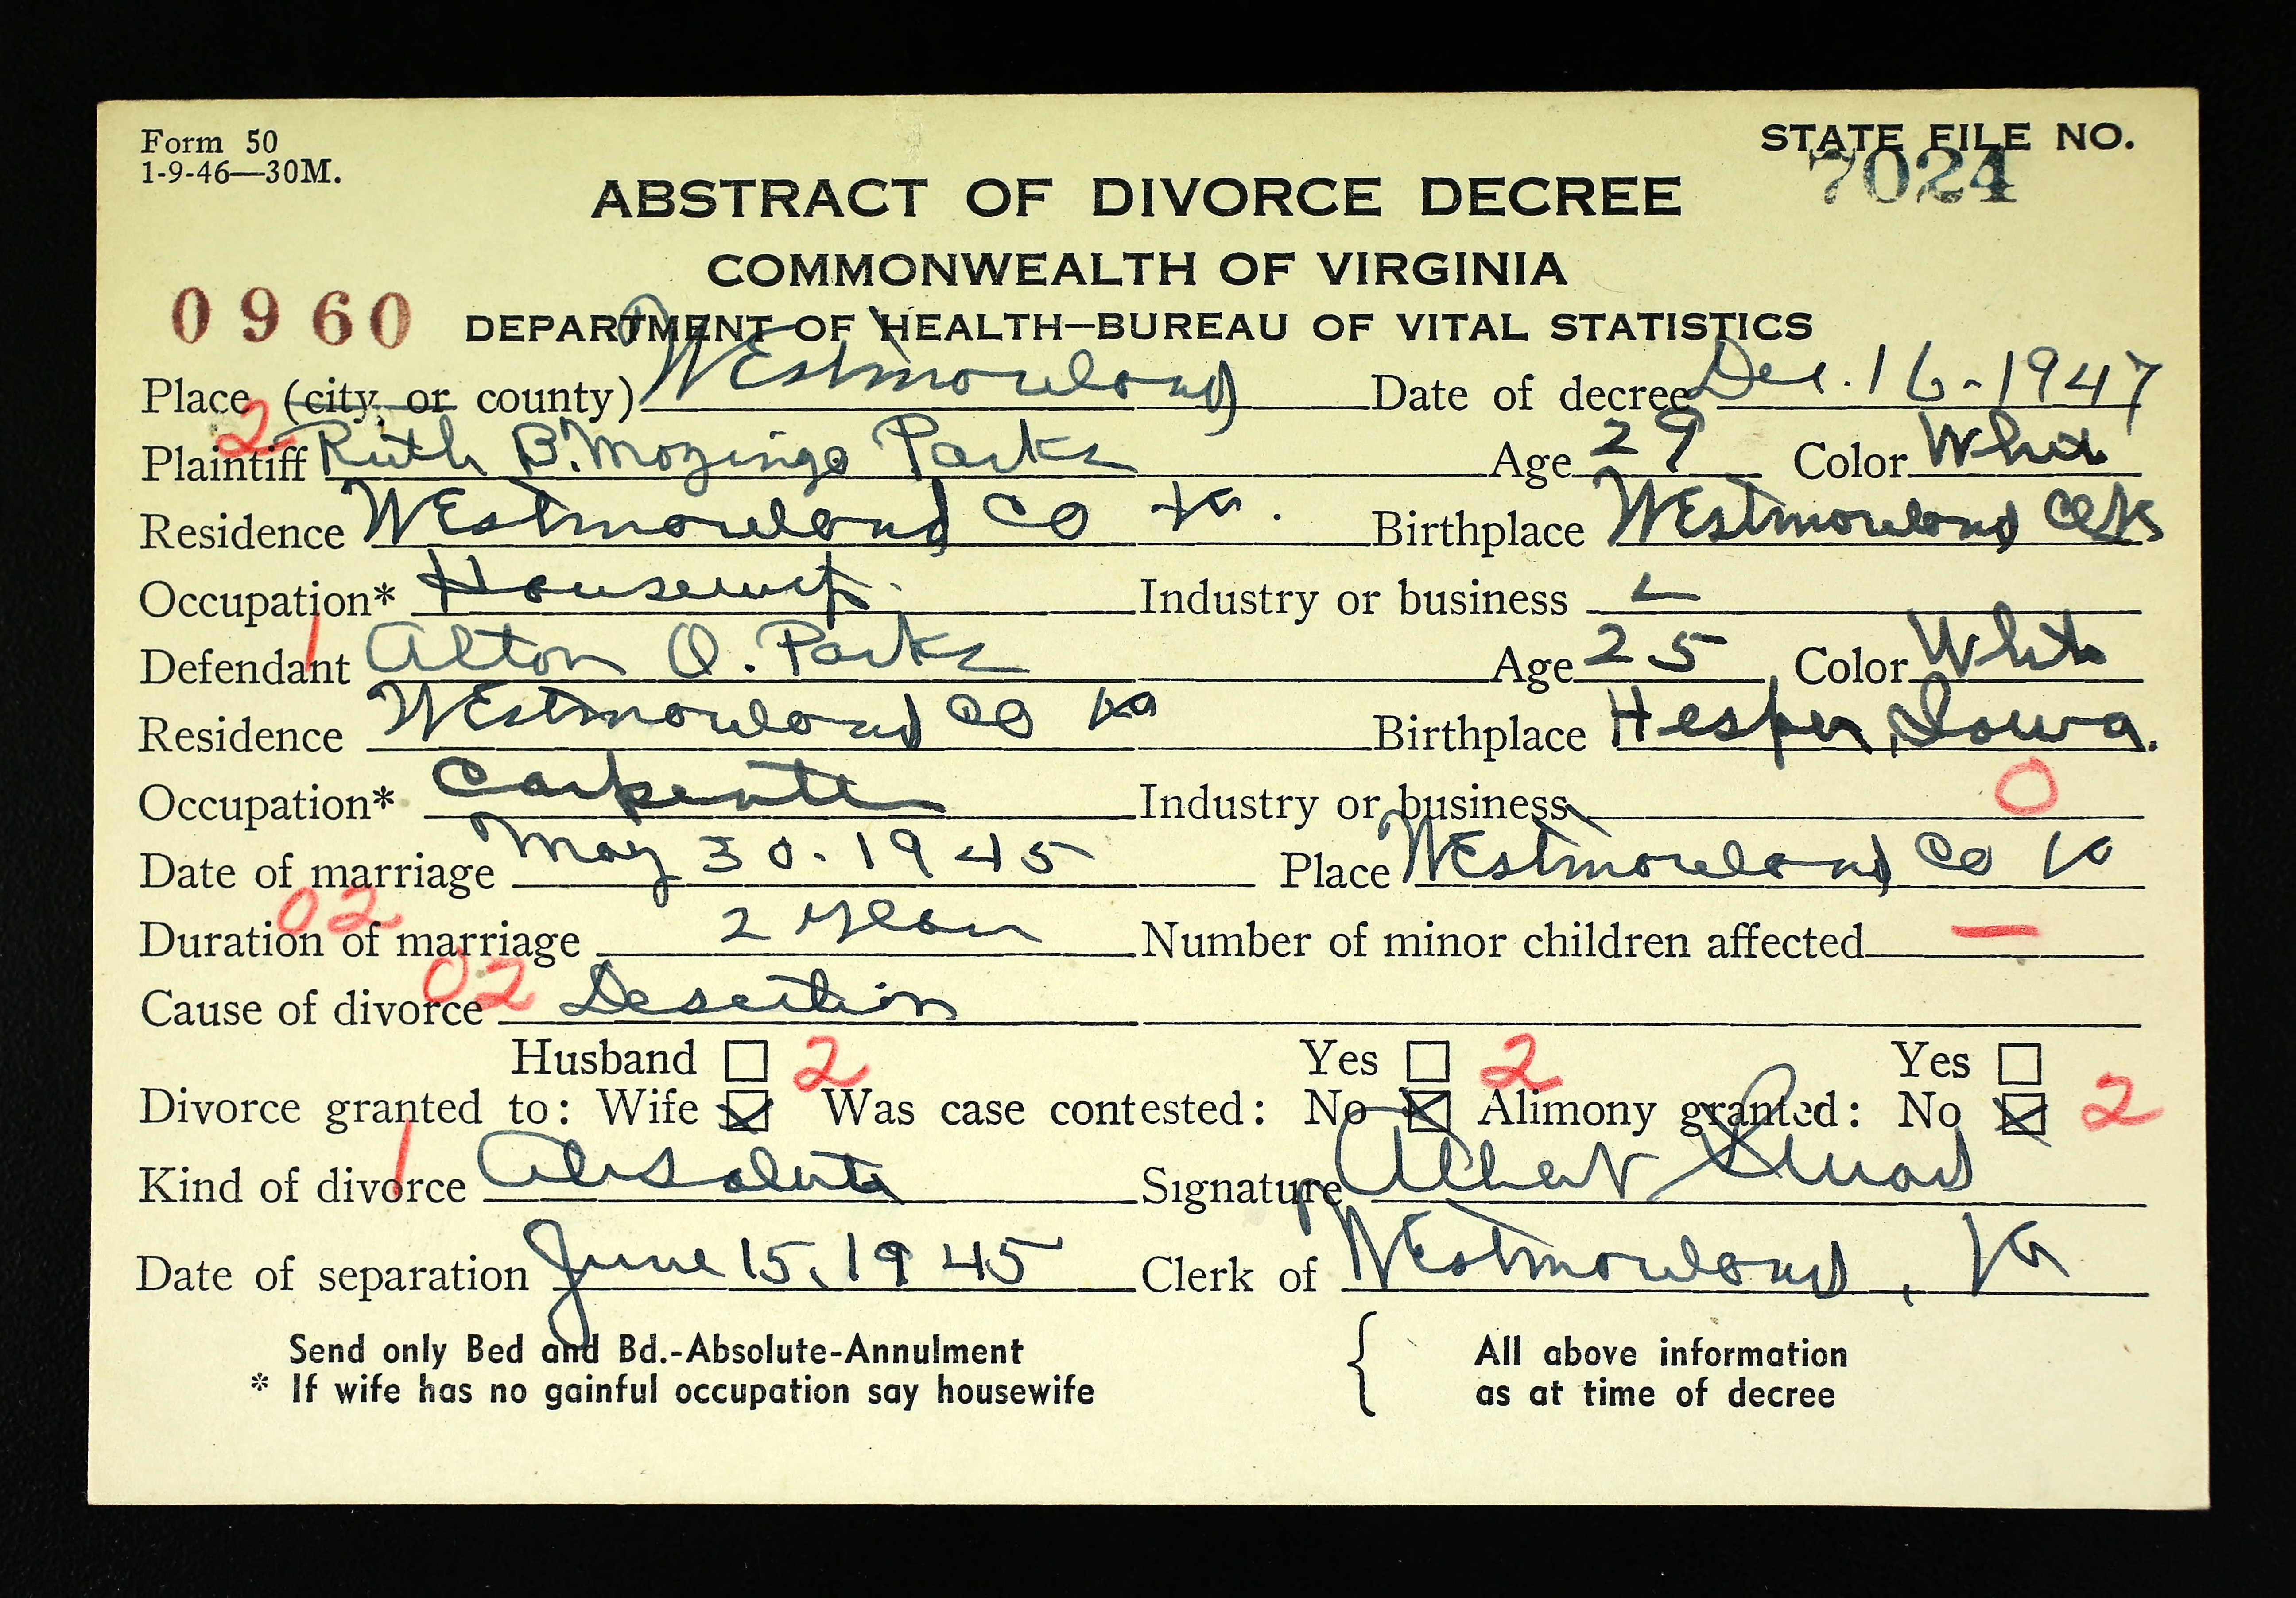 Form 50
1-9-46—30M.
STATE FILE NO.
7024
ABSTRACT OF DIVORCE DECREE
COMMONWEALTH OF VIRGINIA
0960 DEPARTMENT OF HEALTH—BUREAU OF VITAL STATISTICS
Place (city or county) Westmoreland Date of decree Dec. 16-1947
2
Plaintiff Ruth B. Mozingo Parks Age 29 Color White
Residence Westmoreland Co Va. Birthplace Westmoreland Co Va
Occupation* Housewife Industry or business
1
Defendant Alton O. Parks Age 25 Color White
Residence Westmoreland Co Va Birthplace Hesper, Iowa.
Occupation* Carpenter Industry or business 0
Date of marriage May 30. 1945 Place Westmoreland Co Va
02
Duration of marriage 2 years Number of minor children affected —
02
Cause of divorce Desertion
Husband 2 Yes 2 Yes
Divorce granted to: Wife Was case contested: No Alimony granted: No 2
1
Kind of divorce Absolute Signature Albert
Date of separation June 15, 1945 Clerk of Westmoreland, Va
Send only Bed and Bd.-Absolute-Annulment All above information
* If wife has no gainful occupation say housewife as at time of decree